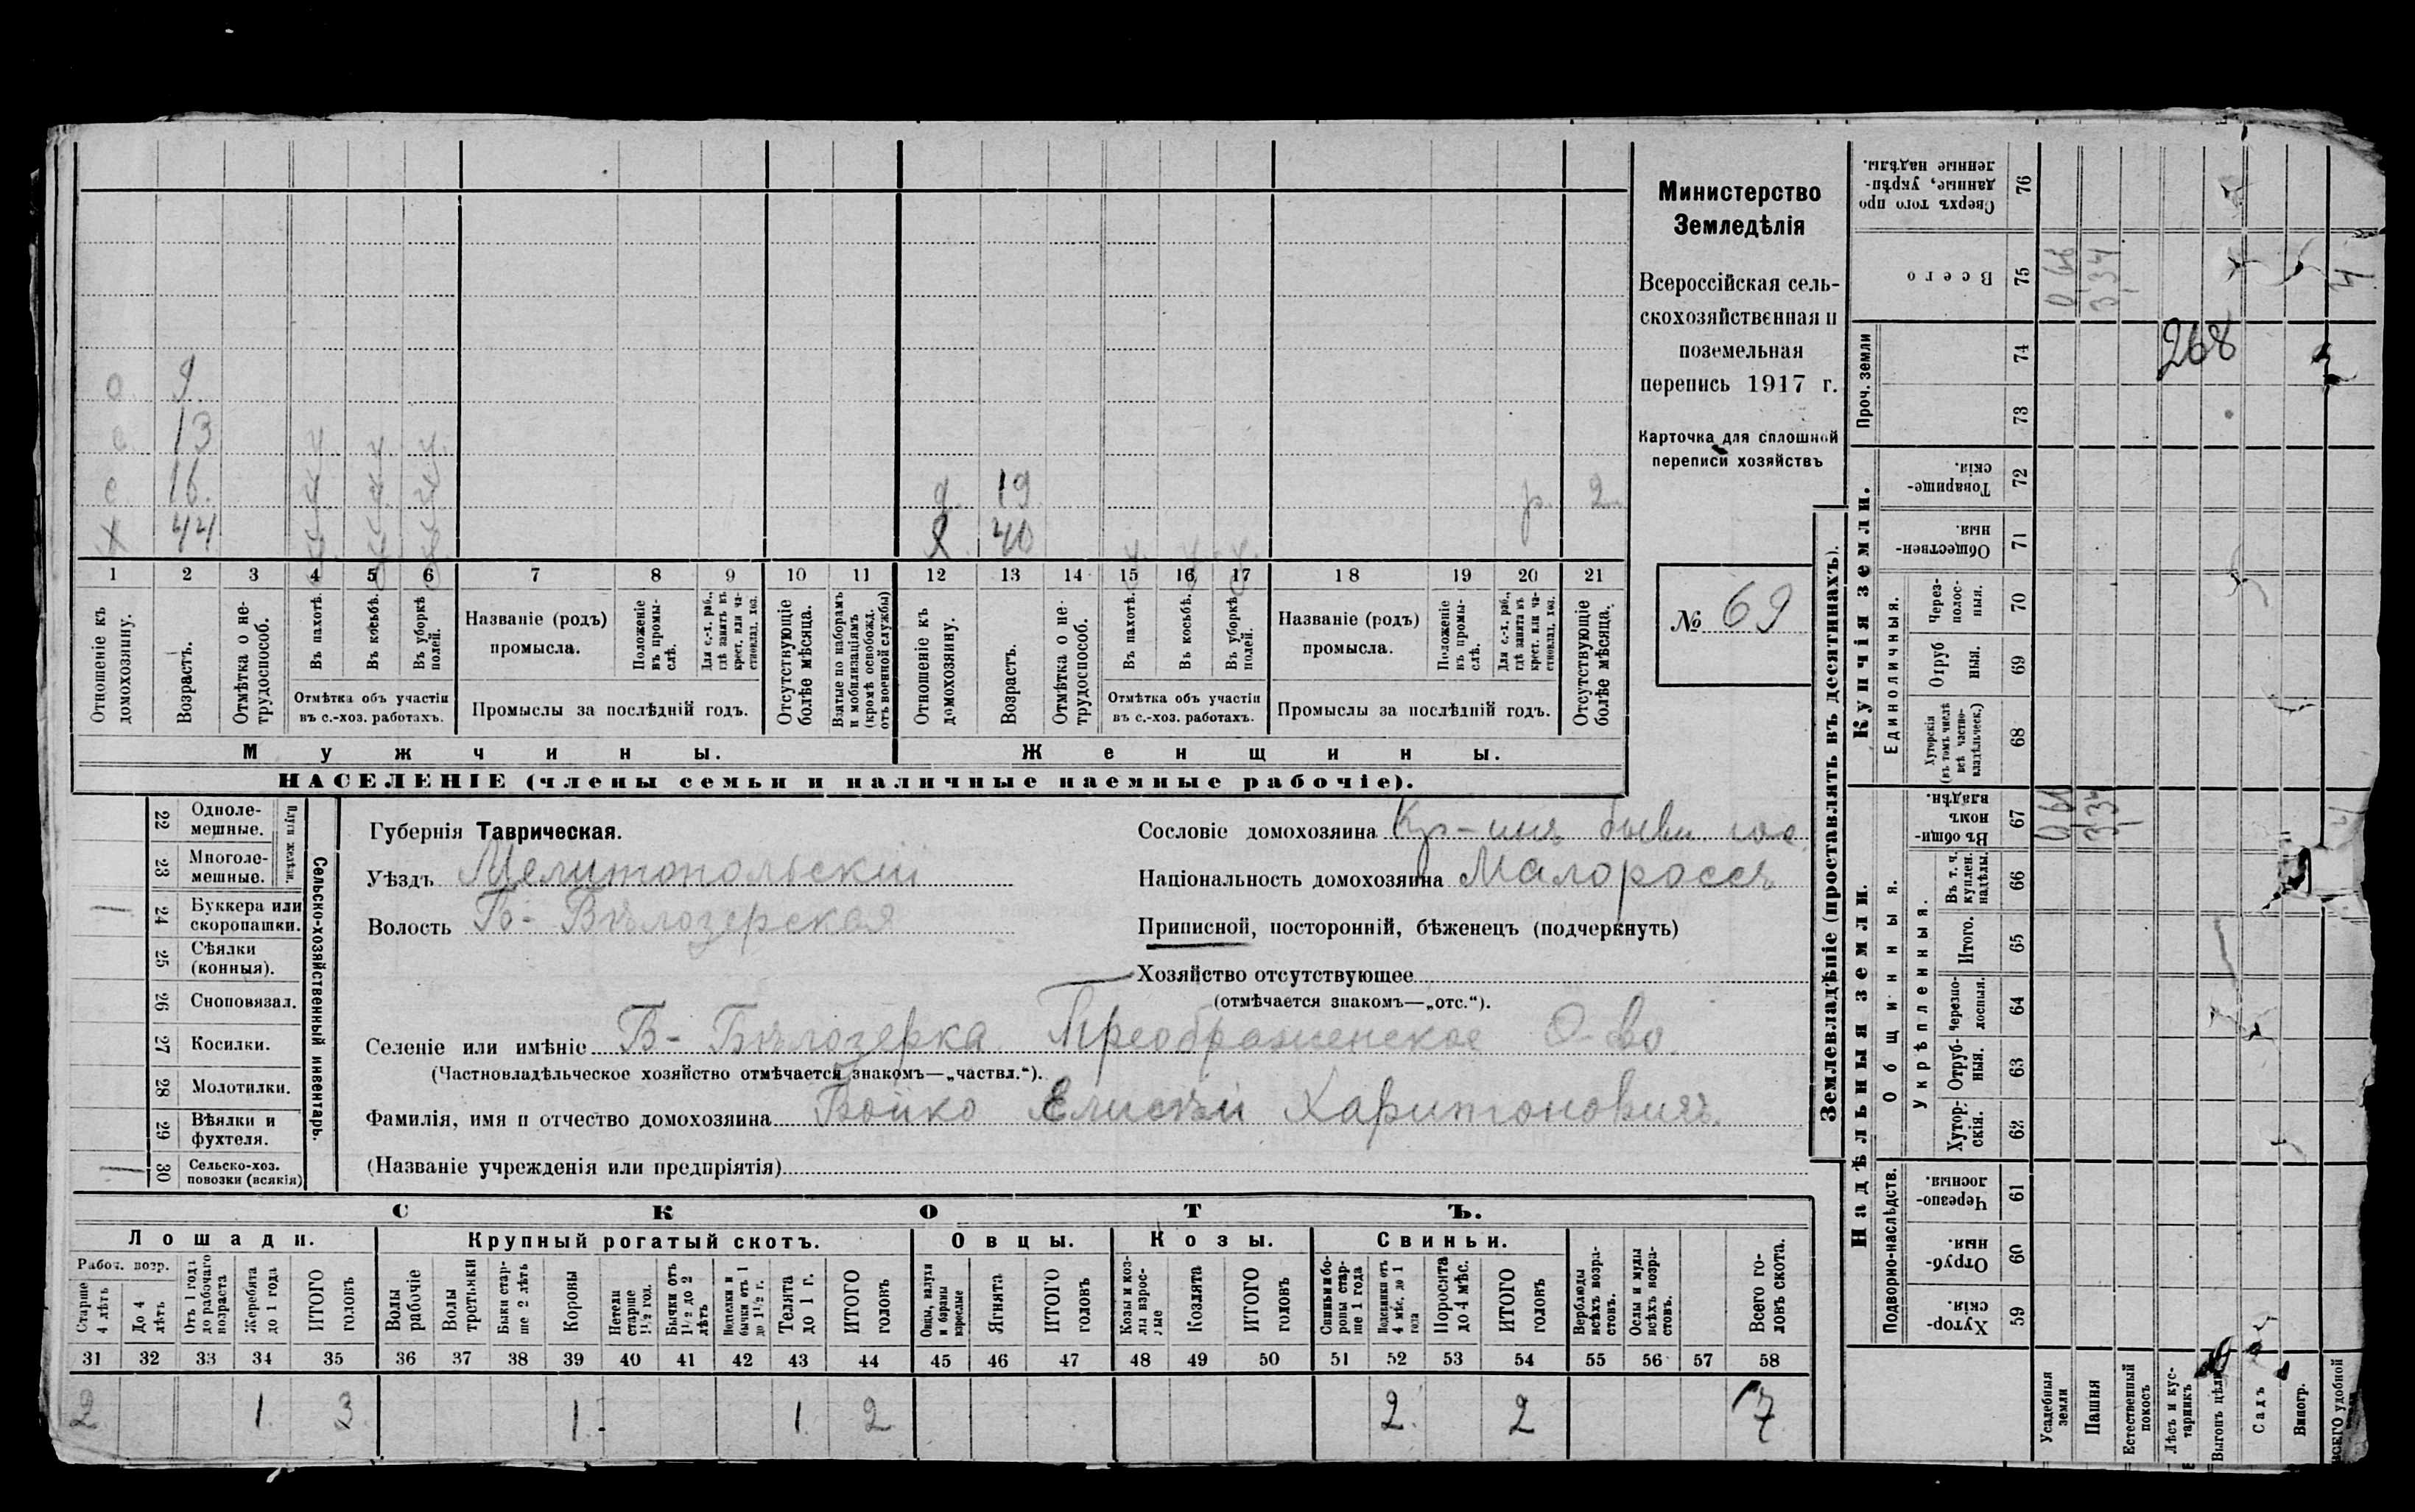 Министерство
Земледѣлія
Всероссійская сель-
скохозяйственная и
поземельная
перепись 1917 г.
Карточка для сплошной
переписи хозяйствъ
№ 69
о. 9.
с. 13
с. 16. д. 19 р. 2
Х 44 Х. 40
1 2 3 4 5 6 7 8 9 10 11 12 13 14 15 16 17 18 19 20 21
Отношеніе къ домохозяину.
Возрастъ.
Отмѣтка о не-трудоспособ.
Въ пахотѣ.
Въ косьбѣ.
Въ уборкѣ полей.
Отмѣтка объ участіи
въ с.-хоз. работахъ.
Названіе (родъ)
промысла.
Положеніе въ промы-слѣ.
Для с.-х. раб., гдѣ занятъ въ крест. или ча-стновлад. хоз.
Промыслы за послѣдній годъ.
Отсутствующіе болѣе мѣсяца.
Взятые по наборамъ и мобилизаціямъ (кромѣ освобожд. отъ военной службы)
Отношеніе къ домохозяину.
Возрастъ.
Отмѣтка о не-трудоспособ.
Въ пахотѣ.
Въ косьбѣ.
Въ уборкѣ полей.
Отмѣтка объ участіи
въ с.-хоз. работахъ.
Названіе (родъ)
промысла.
Положеніе въ промы-слѣ.
Для с.-х. раб., гдѣ занята въ крест. или ча-стновлад. хоз.
Промыслы за послѣдній годъ.
Отсутствующіе болѣе мѣсяца.
Мужчины. Женщины.
НАСЕЛЕНІЕ (члены семьи и наличные наемные рабочіе).
Сельско-хозяйственный инвентарь.
Плуги желѣзн.
22 Одноле-мешные.
23 Многоле-мешные.
24 Буккера или скоропашки.
25 Сѣялки (конныя).
26 Сноповязал.
27 Косилки.
28 Молотилки.
29 Вѣялки и фухтеля.
30 Сельско-хоз. повозки (всякія)
Губернія Таврическая.
Уѣздъ Мелитопольскій
Волость Б-Бѣлозерская
Сословіе домохозяина Кр-инъ бывш. гос.
Національность домохозяина Малороссъ
Приписной, посторонній, бѣженецъ (подчеркнуть)
Хозяйство отсутствующее
(отмѣчается знакомъ—„отс.“).
Селеніе или имѣніе Б-Бѣлозерка Преображенское О-во.
(Частновладѣльческое хозяйство отмѣчается знакомъ—„частвл.“).
Фамилія, имя и отчество домохозяина Бойко Елисѣй Харитоновичъ.
(Названіе учрежденія или предпріятія)
СКОТЪ.
Лошади. Крупный рогатый скотъ. Овцы. Козы. Свиньи.
Рабоч. возр.
Старше 4 лѣтъ
До 4 лѣтъ
Отъ 1 года до рабочаго возраста
Жеребята до 1 года
ИТОГО головъ
Волы рабочіе
Волы третьяки
Быки стар-ше 2 лѣтъ
Коровы
Нетели старше 1½ год.
Бычки отъ 1½ до 2 лѣтъ
Подтелки и бычки отъ 1 до 1½ г.
Телята до 1 г.
ИТОГО головъ
Овцы, валухи и бараны взрослые
Ягнята
ИТОГО головъ
Козы и коз-лы взрос-лые
Козлята
ИТОГО головъ
Свиньи и бо-ровы стар-ше 1 года
Подсвинки отъ 4 мѣс. до 1 года
Поросята до 4 мѣс.
ИТОГО головъ
Верблюды всѣхъ возра-стовъ.
Ослы и мулы всѣхъ возра-стовъ.
Всего го-ловъ скота.
31 32 33 34 35 36 37 38 39 40 41 42 43 44 45 46 47 48 49 50 51 52 53 54 55 56 57 58
2 1 3 1 1 2 2 2 7
Землевладѣніе (проставлять въ десятинахъ).
Надѣльныя земли.
Подворно-наслѣдств.
Хутор-скія. 59
Отруб-ныя. 60
Черезпо-лосныя. 61
Общинныя.
Укрѣпленныя.
Хутор-скія. 62
Отруб-ныя. 63
Черезпо-лосныя. 64
Итого. 65
Въ т. ч. куплен. надѣлы. 66
Въ общин-номъ владѣн. 67
Купчія земли.
Единоличныя.
Хуторскія (въ томъ числѣ всѣ частно-владѣльческ.) 68
Отруб ныя. 69
Через-полос-ныя. 70
Обществен-ныя. 71
Товарище-скія. 72
Проч. земли
73
74
Всего 75
Сверхъ того про данные, укрѣп-ленные надѣлы. 76
268
Усадебныя земли
Пашня
Естественный покосъ
Лѣсъ и кус-тарникъ
Выгонъ цѣл
Садъ
Виногр.
ВСЕГО удобной